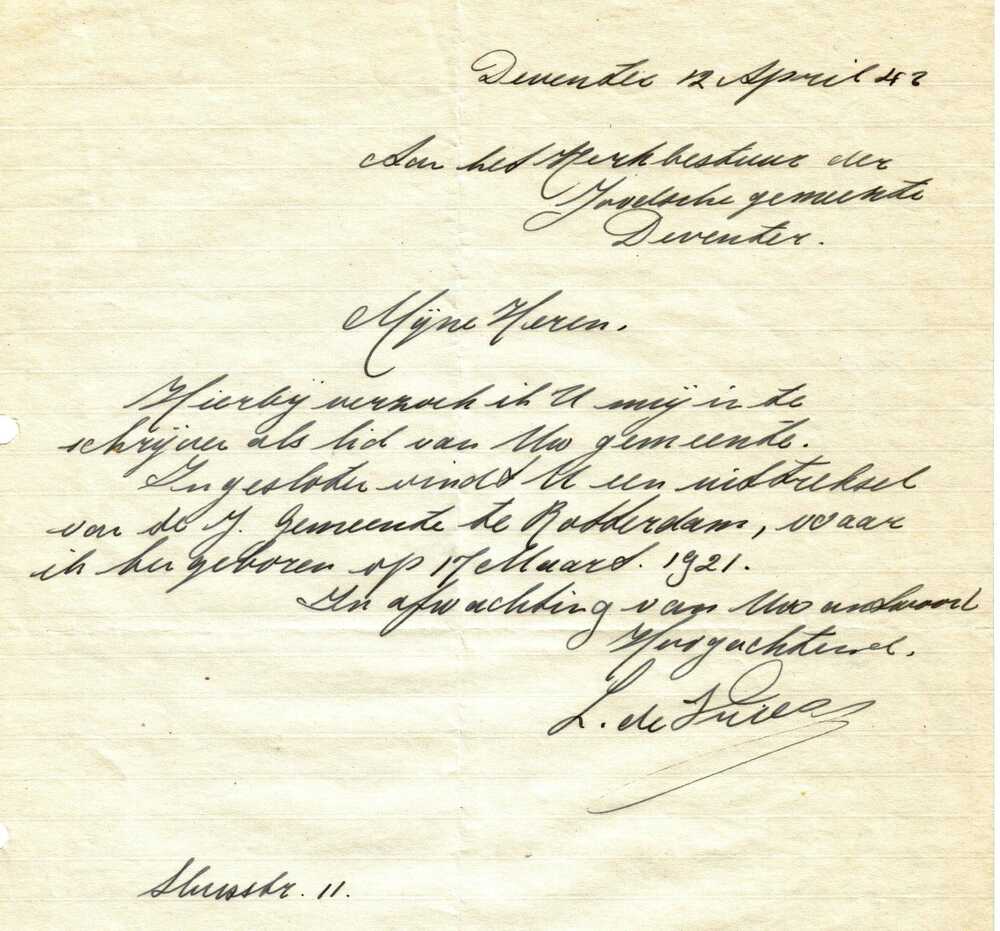 Deventer 12 April 42
Aan het Kerkbestuur der
Joodsche gemeente
Deventer.
Mijne Heren.
Hierbij verzoek ik U mij in te
schrijven als lid van Uw gemeente.
Ingesloten vindt U een uittreksel
van de J. Gemeente te Rotterdam, waar
ik ben geboren op 17 Maart. 1921.
In afwachting van Uw antwoord
Hoogachtend.
L. de Vries
Sluisstr. 11.